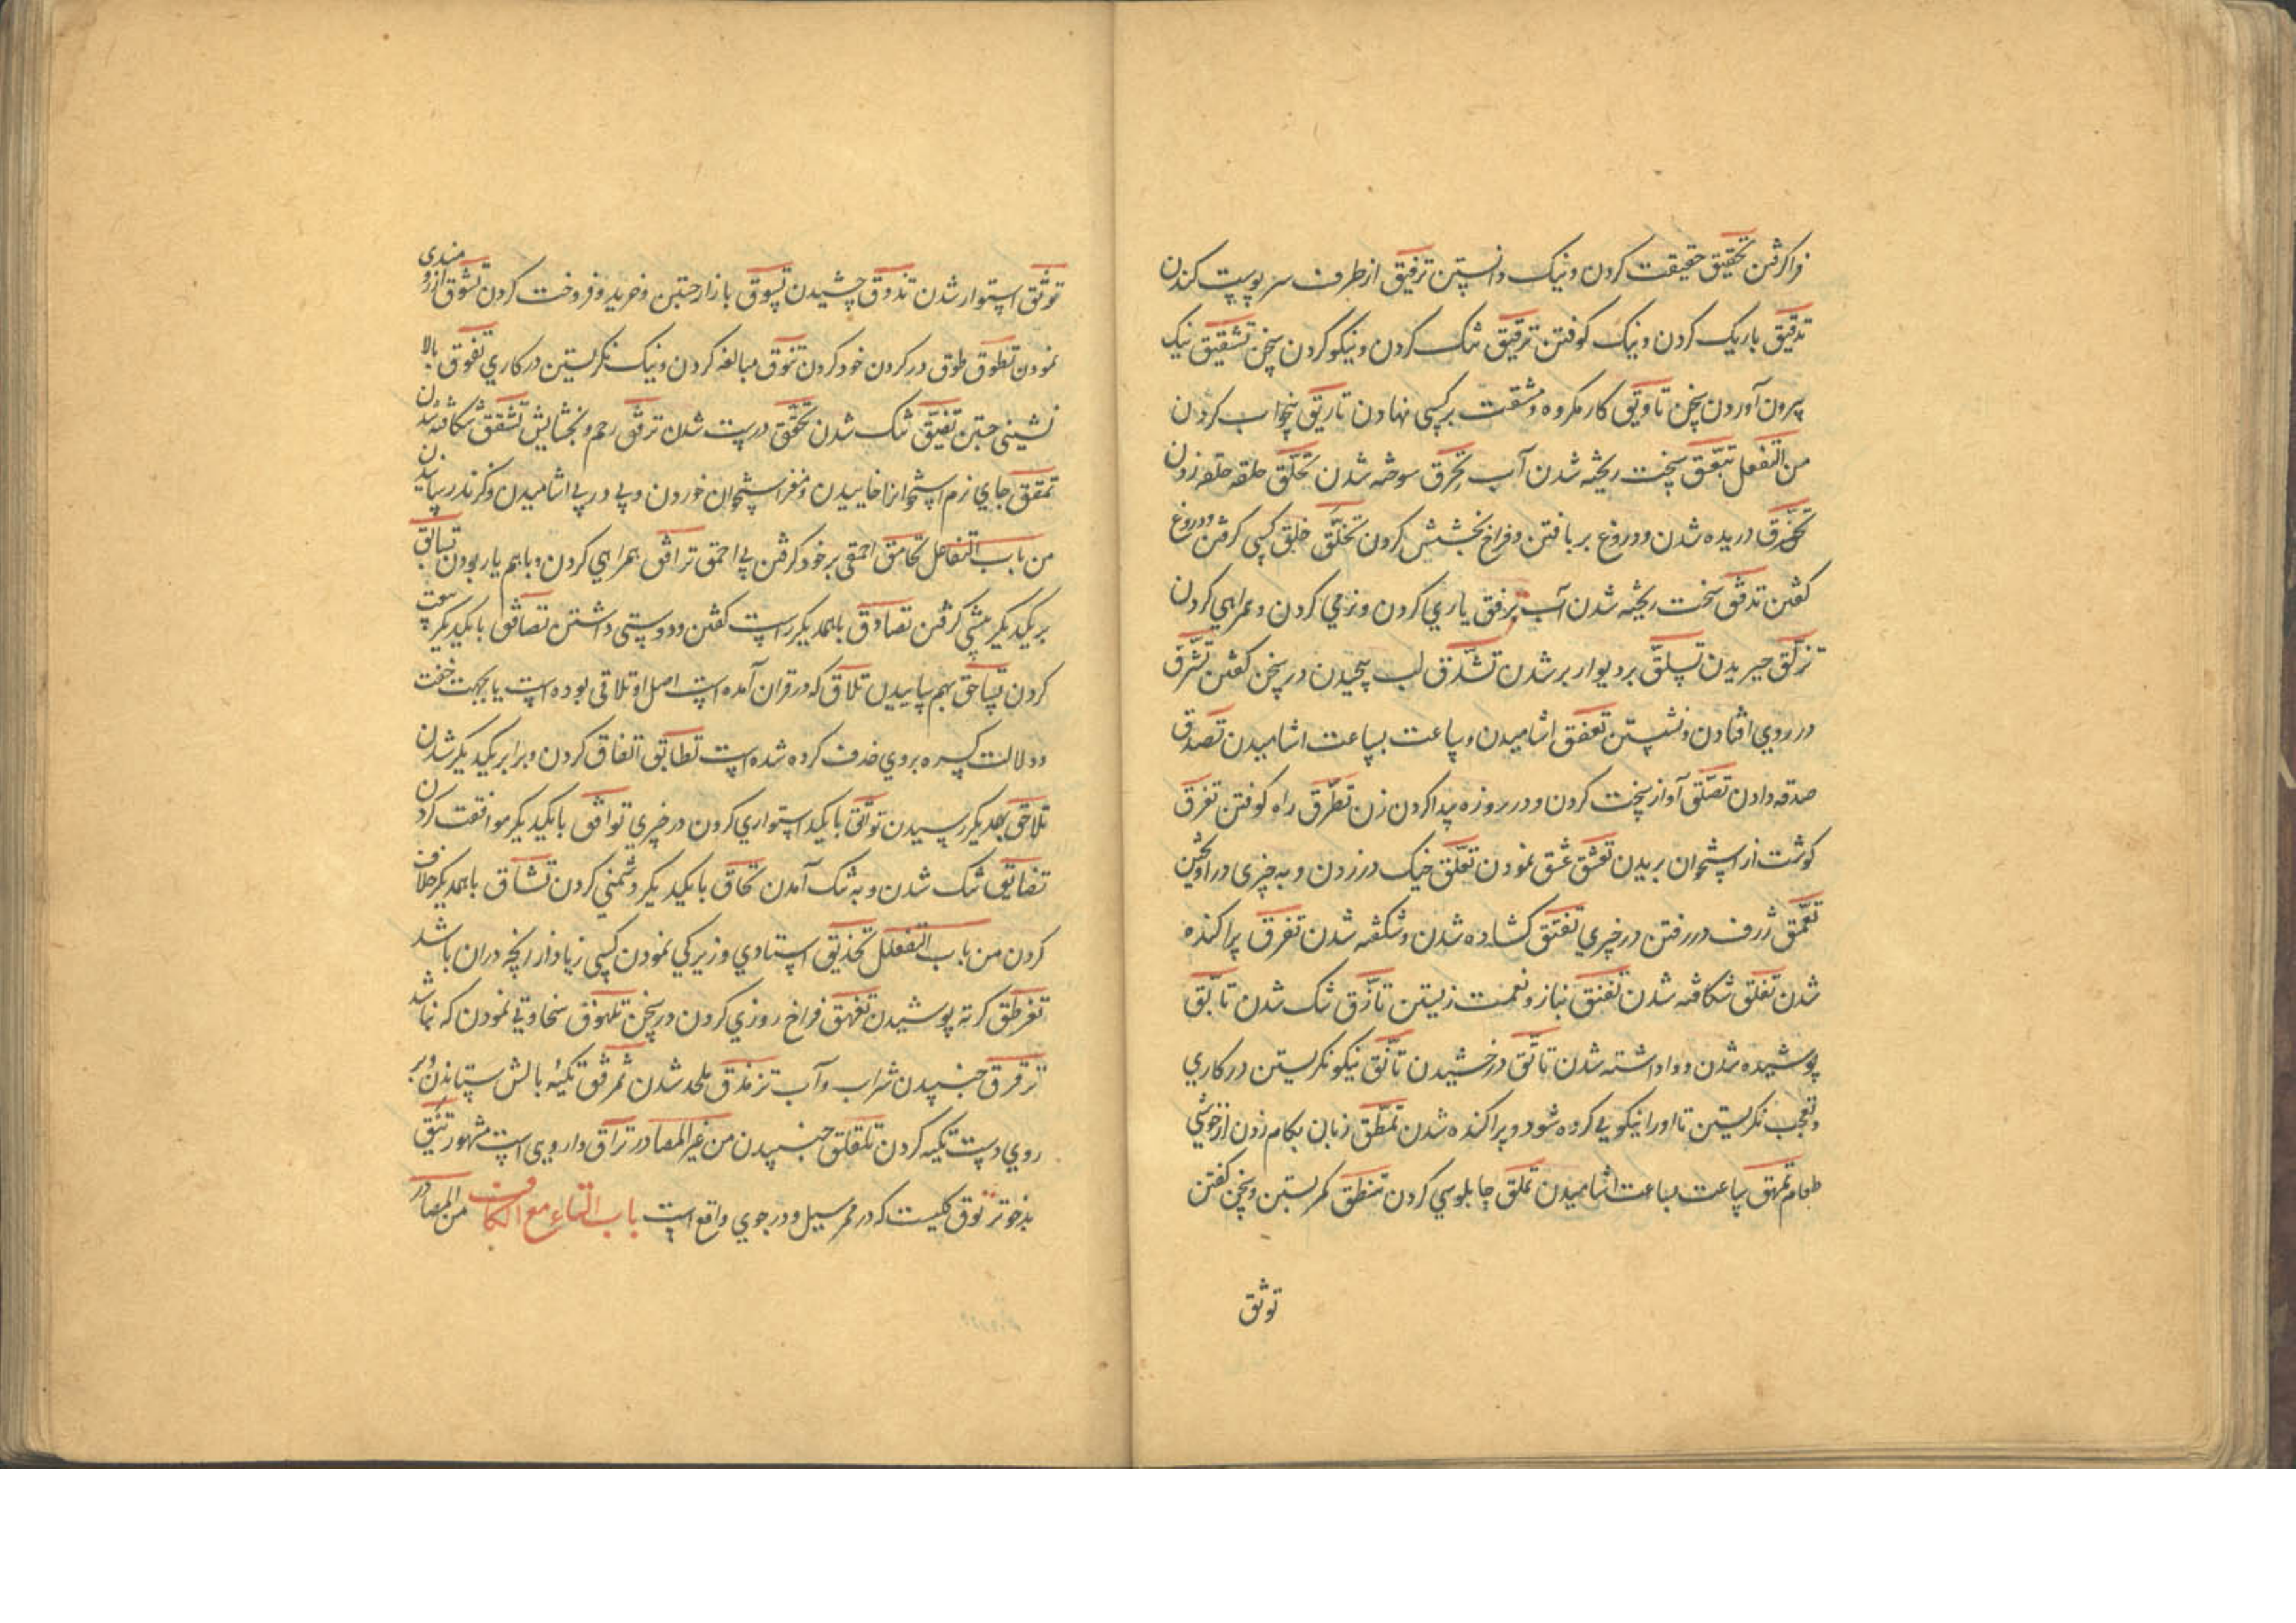 فراکرفتن تحقیق حقیقت کردن و نیک دانستن تزقیق از طرف سر پوست کندن
تدقیق باریک کردن و نیک کوفتن ترقیق تنک کردن و نیکو کردن سخن تشقیق نیک
بیرون آوردن سخن تاویق کار مکروه و مشقت بر کسی نهادن تاریق بیخواب کردن
من التفعل تبعق سخت ریخته شدن آب تحرق سوخته شدن تحلق حلقه حلقه زدن
تخرق دریده شدن و دروغ بر بافتن و فراخ بخشش کردن تخلق خلق کسی کرفتن و دروغ
کفتن تدفق سخت ریخته شدن آب ترفق یاری کردن و نرمی کردن و همراهی کردن
تزلق خیریدن تسلق بر دیوار بر شدن تشدق لب پیچیدن در سخن کفتن تشرق
در روی افتادن و نشستن تعفق اشامیدن و ساعت بساعت اشامیدن تصدق
صدقه دادن تصلق آواز سخت کردن و در روزه پیدا کردن زن تطرق راه کوفتن تعرق
کوشت از استخوان بریدن تعشق عشق نمودن تعلق خیک در زدن و به چیزی در اویختن
تعمق ژرف در رفتن در چیزی تفتق کشاده شدن و شکفته شدن تفرق پراکنده
شدن تفلق شکافته شدن تفنق بناز و نعمت زیستن تازق تنک شدن تابق
پوشیده شدن و واداشته شدن تالق درخشیدن تانق نیکو نکریستن در کاری
و تعجب نکریستن تا او را نیکویی کرده شود و پراکنده شدن تمطق زبان بکام زدن از خوشی
طعام تمهق ساعت بساعت اشامیدن تملق چابلوسی کردن تنطق کمر بستن و سخن کفتن
توثق
توثق استوار شدن تذوق چشیدن تسوق بازار جستن و خرید و فروخت کردن تشوق ارزومندی
نمودن تطوق طوق در کردن خود کردن تنوق مبالغه کردن و نیک نکریستن در کاری تفوق بالا
نشینی جستن تضیق تنک شدن تحقق درست شدن ترقق رحم و بخشایش تشقق شکافته شدن
تمقق جای نرم استخوانرا خاییدن و مغز استخوان خوردن و پی در پی اشامیدن و کزند رسانیدن
من باب التفاعل تحامق احمقی بر خود کرفتن بی احمق ترافق همراهی کردن و باهم یار بودن تسابق
بر یکدیکر پیشی کرفتن تصادق باهمدیکر راست کفتن و دوستی داشتن تصافق بایکدیکر بیعت
کردن تساحق بهم ساییدن تلاق که در قران آمده است اصل او تلاقی بوده است یا بجهت خفت
و دلالت کسره بروی حذف کرده شده است تطابق اتفاق کردن و برابر یکدیکر شدن
تلاحق بهمدیکر رسیدن تواثق بایکدیکر استواری کردن در چیزی توافق بایکدیکر موافقت کردن
تضایق تنک شدن و به تنک آمدن تحاق بایکدیکر دشمنی کردن تشاق باهمدیکر خلاف
کردن من باب التفعلل تحذلق استادی و زیرکی نمودن کسی زیاد از انچه دران باشد
تقرطق کرته پوشیدن تفیهق فراخ روزی کردن در سخن تلهوق سخاوتی نمودن که نباشد
ترقرق جنبیدن شراب و آب تزندق ملحد شدن تمرفق تکیه بالش ستانیدن و بر
روی دست تکیه کردن تلقلق جنبیدن من غیر المصادر تراق دارویی است مشهور تئق
بدخو ترنوق کلیست که در ممر سیل و در جوی واقع است باب التاء مع الکاف من المصادر